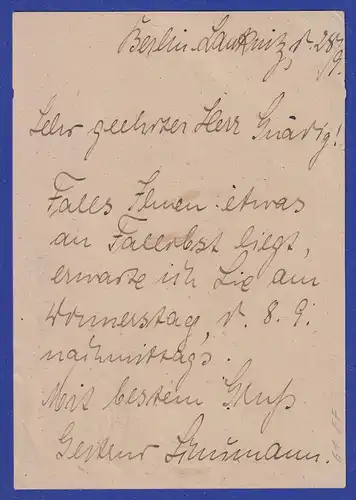 Berlin-Lankwitz, d. 28/
9.
Sehr geehrter Herr Gnädig!
Falls Ihnen etwas
an Fallobst liegt,
erwarte ich Sie am
Donnerstag, d. 8. 9.
nachmittags.
Mit bestem Gruß
Schumann.